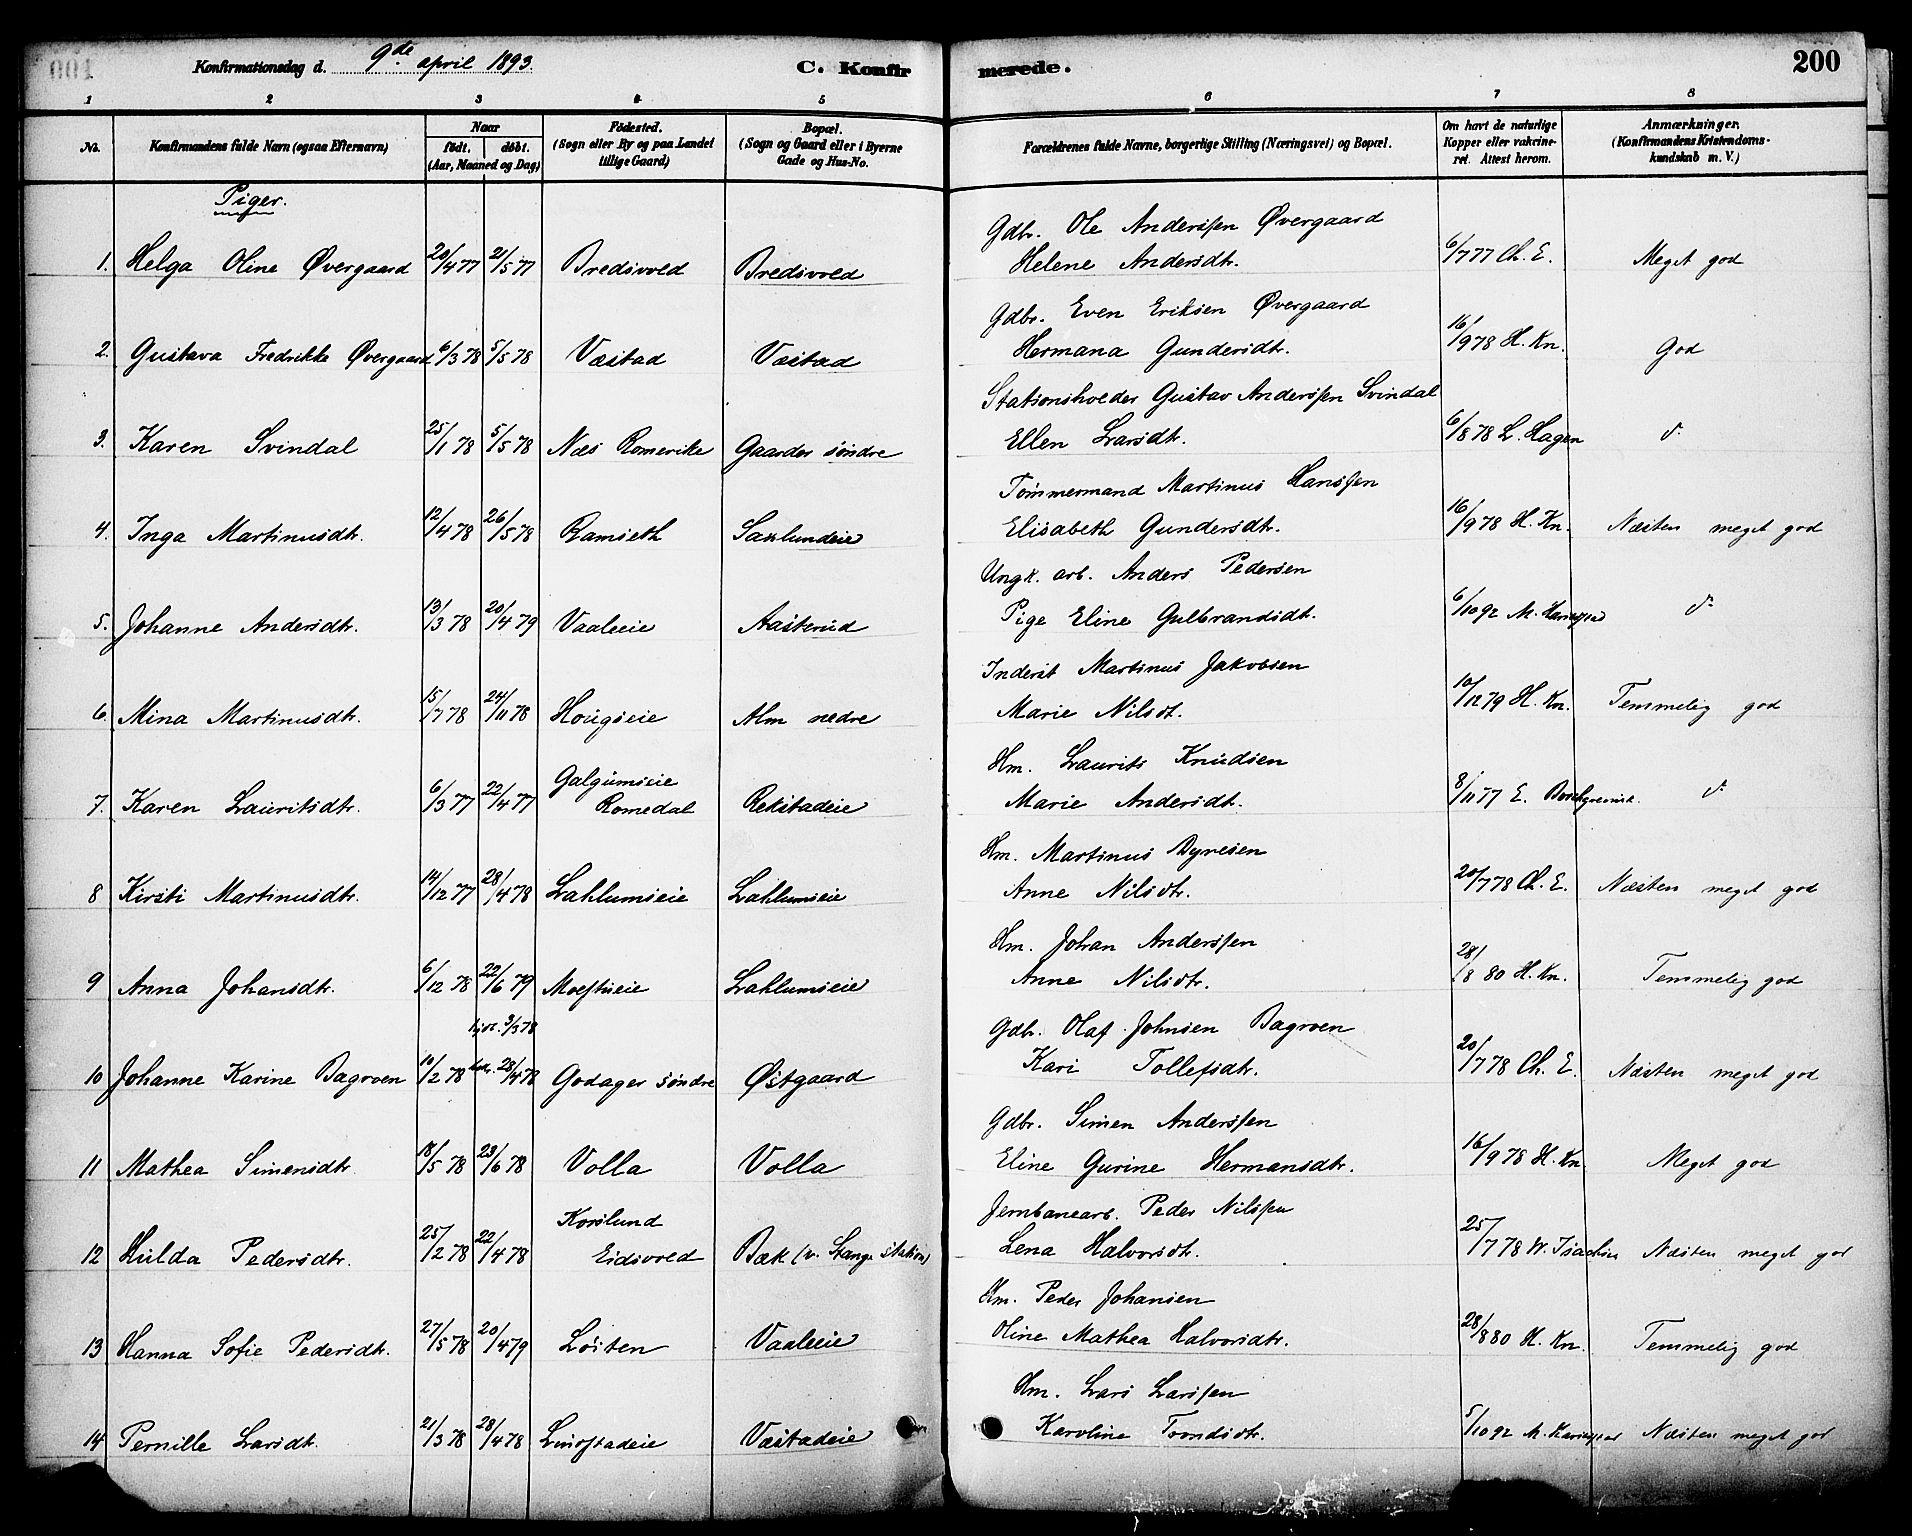 Konfirmationsdag d. 9de april 1893. C. Konfirmerede. 200
1 2 3 4 5 6 7 8
No. Konfirmandens fulde Navn (ogsaa Efternavn) Naar födt. döbt. (Aar, Maaned og Dag) Födested. (Sogn eller By og paa Landet tillige Gaard) Bopæl. (Sogn og Gaard eller i Byerne Gade og Hus-No. Forældrenes fulde Navne, borgerlige Stilling (Næringsvei) og Bopæl. Om havt de naturlige Kopper eller vakcineret. Attest herom. Anmærkninger. (Konfirmandens Kristendomskundskab m. V.)
Piger.
Gdbr. Ole Anderssen Øvergaard
1. Helga Oline Øvergaard 20/4 77 21/5 77 Bredsvold Bredsvold Helene Andersdtr. 6/7 77 Ch. E. Meget god
Gdbr. Even Eriksen Øvergaard
2. Gustava Fredrikke Øvergaard 6/3 78 5/5 78 Væstad Væstad Hermana Gundersdtr. 16/9 78 H. Kn. God
Stationsholder Gustav Anderssen Svindal
3. Karen Svindal 25/1 78 5/5 78 Næs Romerike Gaarder söndre Ellen Larsdtr. 6/8 78 L. Hagen do
Tömmermand Martinus Hanssen
4. Inga Martinusdtr. 12/4 78 26/5 78 Ramseth Saxlundeie Elisabeth Gundersdtr. 16/9 78 H. Kn. Næsten meget god
Ungk. arb. Anders Pedersen
5. Johanne Andersdtr. 13/3 78 20/4 79 Vaaleeie Aasterud Pige Eline Gulbrandsdtr. 6/10 92 M. do
Inderst Martinus Jakobsen
6. Mina Martinusdtr. 15/7 78 24/11 78 Hougseie Alm nedre Marie Nilsdt. 10/12 79 H. Kn. Temmelig god
Hm. Laurits Knudsen
7. Karen Lauritsdtr. 6/3 77 22/4 77 Galgumseie Romedal Rekstadeie Marie Andersdt. 8/11 77 E. Borchgrevink. do
Hm. Martinus Dyresen
8 Kirsti Martinusdtr. 14/12 77 28/4 78 Lahlumseie Lahlumseie Anne Nilsdtr. 20/7 78 Ch. E. Næsten meget god
Hm. Johan Anderssen
9 Anna Johansdtr. 6/12 78 22/6 79 Moestueie Lahlumseie Anne Nilsdtr. 28/8 80 H. Kn. Temmelig god
hjd. 3/3 78 Gdbr. Olaf Johnsen Bagroen
10 Johanne Karine Bagroen 10/2 78 28/4 78 Godager söndre Østgaard Kari Tollefsdtr. 20/7 78 Ch. E. Næsten meget god
Gdbr. Simen Anderssen
11 Mathea Simensdtr. 18/5 78 23/6 78 Volla Volla Eline Gurine Hermansdtr. 16/9 78 H. Kn. Meget god
Jernbanearb. Peder Nilssen
12 Hulda Pedersdtr. 25/2 78 22/4 78 Korslund Eidsvold Bæk (v. Stange station) Lena Halvorsdt. 25/7 78 W. Næsten meget god
Hm. Peder Johansen
13 Hanna Sofie Pedersdt. 27/5 78 20/4 79 Löiten Vaaleeie Oline Mathea Halvorsdtr. 28/8 80 H. Kn. Temmelig god
Hm. Lars Larssen
14 Pernille Larsdt. 21/3 78 28/4 78 Væstadeie Karoline Trondsdtr. 5/10 92 M. Næsten meget god